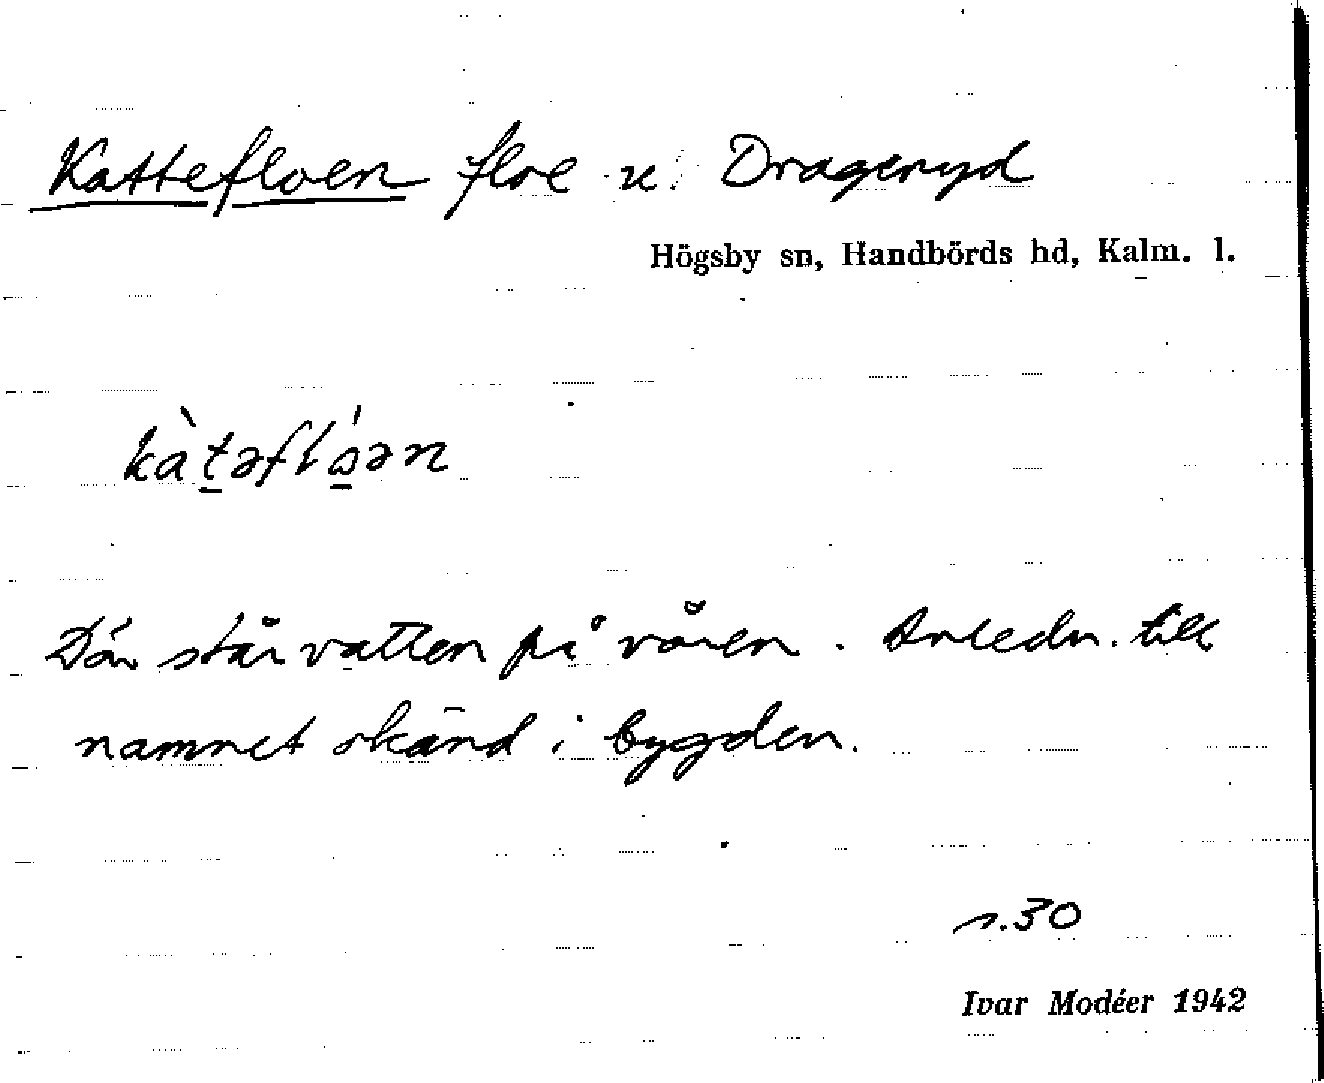 Kattefloen floe u. Drageryd
Högsby sn, Handbörds hd, Kalm. l.
kàt̠əfló̠ən
Där står vatten på våren. Anledn. till
namnet okänd i bygden.
s.30
Ivar Modéer 1942